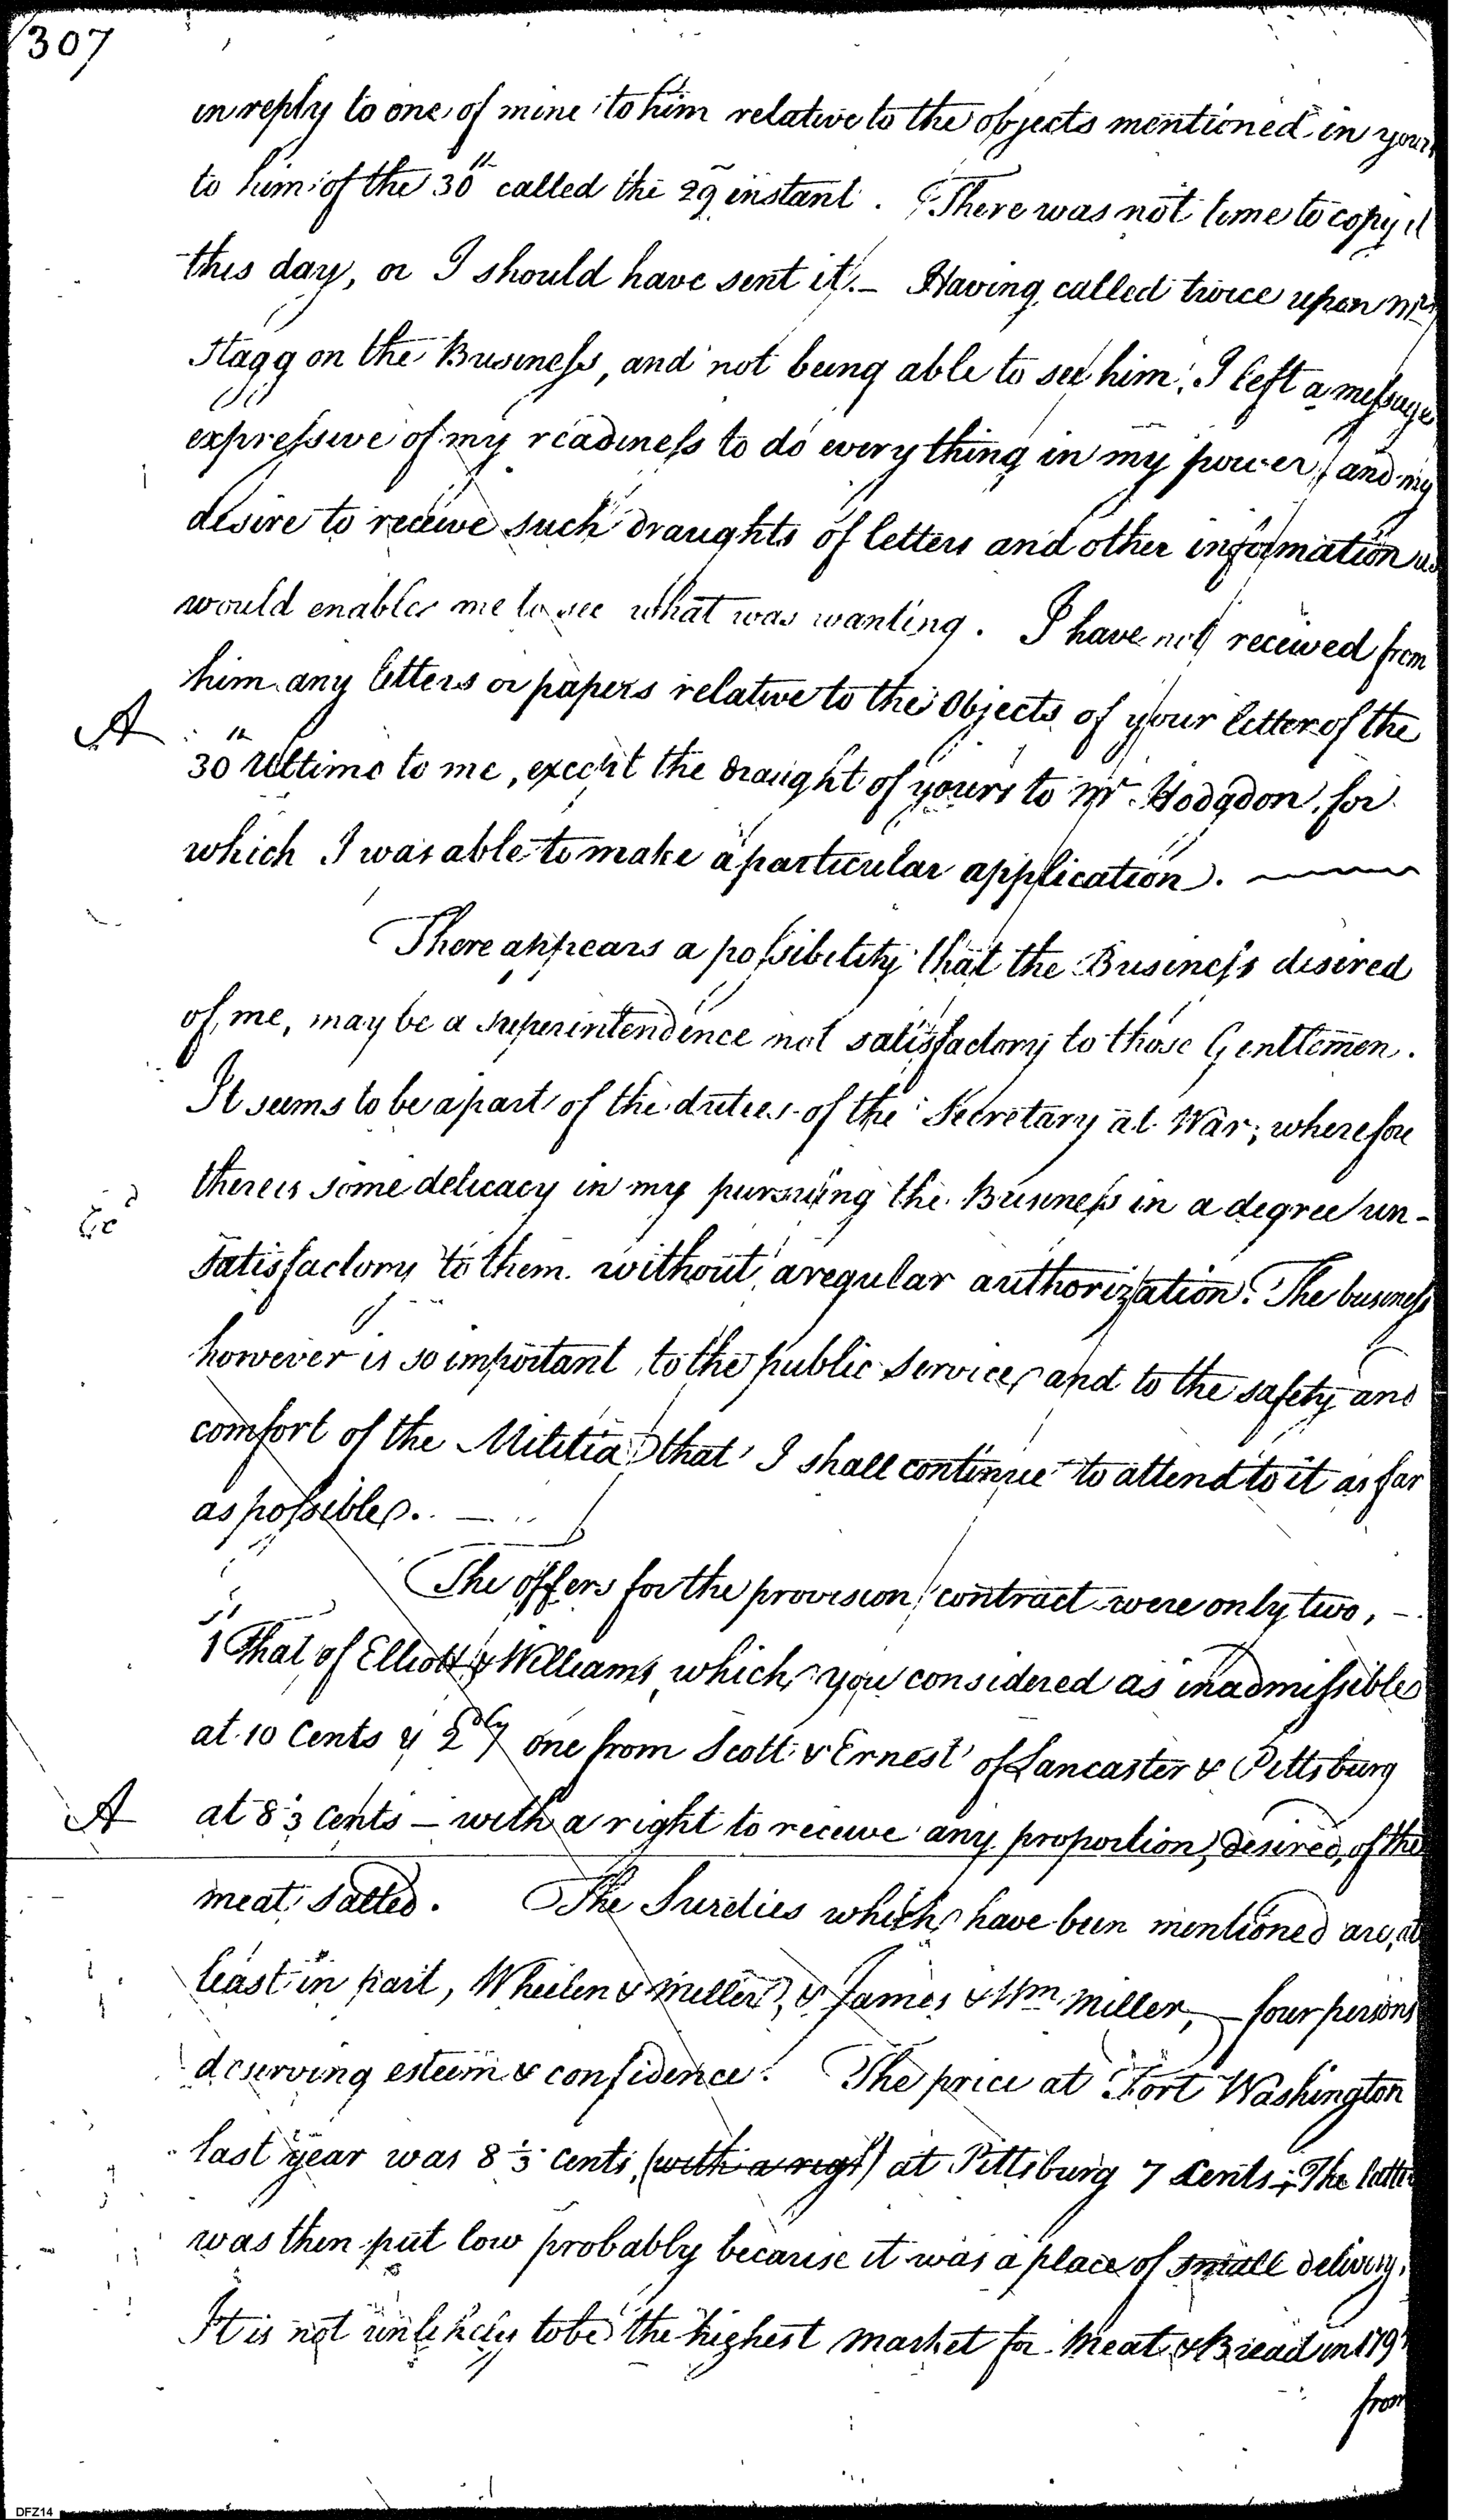 307
in reply to one of mine to him relative to the objects mentioned in yours
to him of the 30th called the 29 instant. There was not time to copy it
this day, or I should have sent it.— Having called twice upon Mr
Stagg on the Business, and not being able to see him, I left a message
expressive of my readiness to do every thing in my power, and my
desire to receive such draughts of letters and other information as
would enable me to see what was wanting. I have not received from
him any letters or papers relative to the Objects of your letter of the
A
30th Ultimo to me, except the draught of yours to Mr. Hodgdon, for
which I was able to make a particular application. —
There appears a possibility that the Business desired
of me, may be a superintendence not satisfactory to those Gentlemen.
It seems to be a part of the duties of the Secretary at War; wherefore
there is some delicacy in my pursuing the Business in a degree un-
satisfactory to them without a regular authorization. The business
however is so important to the public service, and to the safety and
comfort of the Militia that I shall continue to attend to it as far
as possible. —
The offers for the provision contract were only two, —
1st That of Elliott & Williams, which you considered as inadmissible
at 10 Cents & 2dly one from Scott & Ernest of Lancaster & Pittsburg
A at 8⅓ Cents — with a right to receive any proportion, desired, of the
meat salted. The Sureties which have been mentioned are, at
least in part, Wheelen & Miller, & James & Wm Miller, — four persons
deserving esteem & confidence. The price at Fort Washington
last year was 8⅓ cents, (with a regt) at Pittsburg 7 Cents; The latter
was then put low probably because it was a place of small delivery.
It is not unlikely to be the highest market for Meat & Bread in
from
DFZ14